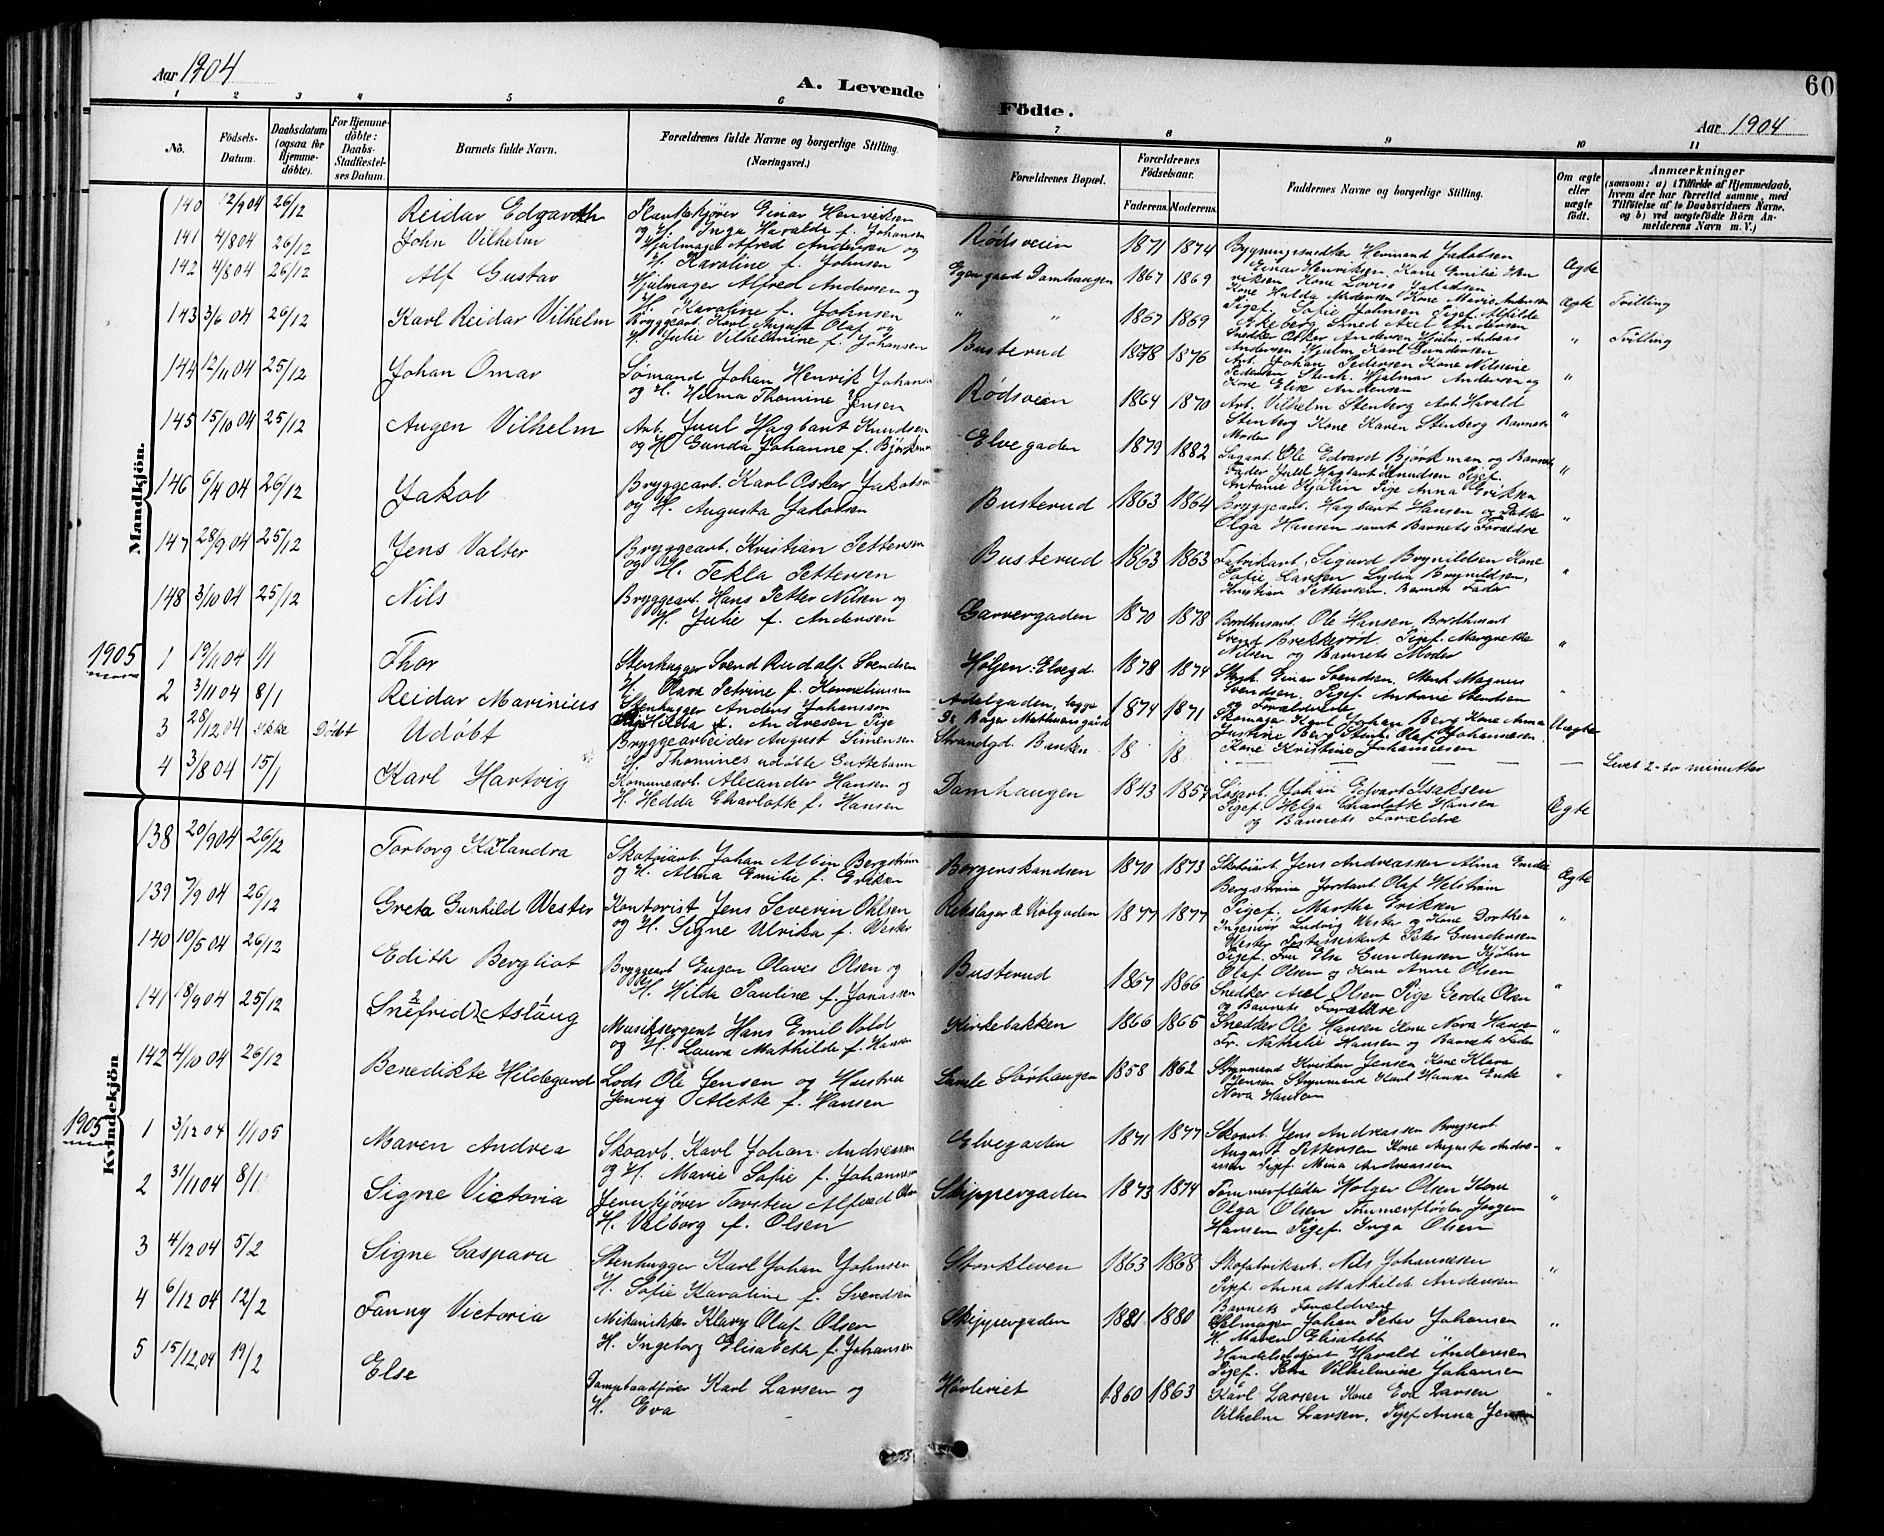 Aar 1904
A. Levende
Födte.
60
Aar 1904
1 2 3 4 5 6 7 8 9 10 11
No.
Födsels-Datum.
Daabsdatum (ogsaa for Hjemmedöbte).
For Hjemmedöbte: Daabs-Stadfæstelses Datum.
Barnets fulde Navn.
Forældrenes fulde Navne og borgerlige Stilling. (Næringsvei.)
Forældrenes Bopæl.
Forældrenes Födselsaar.
Faderens. Moderens.
Faddernes Navne og borgerlige Stilling.
Om ægte eller uægte födt.
Anmærkninger
(saasom: a) i Tilfælde af Hjemmedaab, hvem der har forrettet samme, med Tilföielse af to Daabsvidners Navne, og b) ved uægtefödte Börn Anmelderens Navn m. V.)
Mandkjön.
140 12/9 04 26/12 Reidar Edgardh
Einar Henriksen
og H. Inga Havalda f. Johansen
Rødsveien 1871 1874
Bygningssnedker Hermand Jakobsen
Einar Henriksen, Kone Emilie Hen
riksen Kone Lovise Jakobsen
Ægte
141 4/8 04 26/12 John Vilhelm
Hjulmager Alfred Andersen og
H. Karoline f. Johnsen
Egen gaard Damhaugen 1867 1869
Kone Hulda Andersen Kone Marie Andersen
Pigef. Sofie Johnsen Pigef. Alfilde
Ægte Tvilling
142 4/8 04 26/12 Alf Gustav
Hjulmager Alfred Andersen og
H. Karoline f. Johnsen
" " 1867 1869
Snedker Oskar Andersen Hjulm. Andreas
Andersen Hjulm. Karl Gundersen
" Tvilling
143 3/6 04 26/12 Karl Reidar Vilhelm
Bryggearb. Karl August Olaf og
H. Julie Vilhelmine f. Johansen
Busterud 1878 1876
Arb. Johan Pedersen Kone Nilsine
Pedersen Stenh. Hjalmar Andersen og
Kone Elise Andersen
"
144 12/11 04 25/12 Johan Omar
Sømand Johan Henrik Johansen
og H. Hilma Thomine Jensen
Rødsveien 1864 1870
Arb. Vilhelm Stenberg Arb. Harald
Stenberg Kone Karen Stenberg Barnets
Moder
"
145 15/10 04 25/12 Augen Vilhelm
Arb. Juul Hagbart Knudsen
og H. Gunda Johanne f. Björkman
Elvegaden 1879 1882
Sagarb. Ole Edvard Björkman og Barnets
Fader Juul Hagbart Knudsen Pigef.
Antonie Hjølin Pige Anna Eriksen
"
146 6/4 04 26/12 Jakob
Bryggearb. Karl Oskar Jakobsen
og H. Augusta Jakobsen
Busterud 1863 1864
Bryggearb. Hagbart Hansen og
Olga Hansen samt Barnets Forældre
"
147 28/9 04 25/12 Jens Valter
Bryggearb. Kristian Pettersen
og H. Tekla Pettersen
Busterud 1863 1863
Fabrikarb. Sigurd Brynildsen Kone
Sofie Larsen Lydia Brynildsen,
Kristian Pettersen. Barnets Fader
"
148 3/10 04 25/12 Nils
Bryggearb. Hans Petter Nilsen og
H. Julie f. Andersen
Garvergaden 1870 1878
Bordhusarb. Ole Hansen, Bordhusarb
Svend Brekkerød Pigef. Margrethe
Nilsen og Barnets Moder
"
1905
1 19/11 04 1/1 Thor
Stenhugger Svend Rudolf Svendsen
H. Olava Petrine f. Korneliussen
Høljen: Elvegd. 1878 1874
Einar Svendsen, Stenh. Magnus
Svendsen, Pigef. Antonie Svendsen
og Forældrene
"
2 3/11 04 8/1 Reidar Marinius
Stenhugger Anders Johansson
Hilda f. Pige
Adelgaden,
Bager Mathiesengård 1874 1871
Skomager Karl Johan Berg Kone Anna
Justine Berg Stenh. Olaf Johannesen
Kone Kristine Johannesen
Uægte
3 28/12 04 ikke Dödt Udöbt
Bryggearbeider August Simensen
H. Thomines udöbte Guttebarn
Strandgd. Banken 18 18
— — — — —
Levet 2-to minutter
4 3/8 04 15/1 Karl Hartvig
Komunearb. Alexander Hansen og
H. Hedda Charlotte f. Hansen
Damhaugen 1843 1857
Losarb. Johan Edvart Isaksen
Pigef. Helga Charlotte Hansen
og Barnets Forældre
Ægte
Kvindekjön
138 20/9 04 26/12 Torborg Kalandra
Skotøiarb. Johan Albin Bergström
og H. Alma Emilie f. Eriksen
Borgenskandsen 1870 1873
Skotøiarb. Jens Andreassen Alma Emilie
Bergstrøm Jordarb. Olaf Helstrøm
Pigef. Martha Eriksen
Ægte
139 7/9 04 26/12 Greta Gunhild Wester
Kontorist Jens Severin Ohlsen
og H. Signe Ulrika f. Wester
Rebslager & Kolgaden 1877 1877
Ingeniør Ludvig Wester og Kone Dorthea
Wester Peter Gundersen
Pigef. Fru Elsa Gundersen
"
140 19/5 04 26/12 Edith Bergliot
Bryggearb Eugen Olaves Olsen og
H. Hilda Pauline f. Jonassen
Busterud 1867 1866
Olaf Olsen og Kone Anne Olsen
Snedker Axel Olsen Pige Gerda Olsen
og Barnets Forældre
"
141 18/9 04 25/12 Snefrid Aslaug
Musiksergent Hans Emil Vold
og H. Laura Mathilde f. Hansen
Kirkebakken 1866 1865
Snedker Ole Hansen Kone Nora Hansen
Fr. Nathalie Hansen og Barnets Fader
"
142 4/10 04 26/12 Benedikte Hildegard
Lods Ole Jensen og Hustru
Jenny Alette f. Hansen
Lamle Sørhaugen 1858 1862
Styrmand Kristen Jensen Kone Klara
Jensen Styrmand Karl Hansen Enke
Nora Hansen
"
1905
1 3/12 04 1/1 05 Maren Andrea
Skoarb. Karl Johan Andreassen
og H. Marie Sofie f. Johannesen
Elvegaden 1871 1877
Skoarb. Jens Andreassen Brygearb.
August Pettersen Kone Augusta Andre-
assen Pigef. Mina Andreassen
"
2 31/11 04 8/1 Signe Victoria
Torsten Alfred Olsen
H. Valborg f. Olsen
Skippergaden 1873 1874
Tømmerfløder Holger Olsen Kone
Olga Olsen Tømmerfløder Jørgen
Hansen Pigef. Inga Olsen
"
3 4/12 04 5/2 Signe Caspara
Stenhugger Karl Johan Johnsen
H. Sofie Karoline f. Svendsen
Storkleven 1863 1868
Skofabrikarb. Nils Johannesen
Pigef. Anna Mathilde Andersen
Barnets Forældrene
"
4 6/12 04 12/2 Fanny Victoria
Mekanikker Klavy Olaf Olsen
H. Ingeborg Elisabeth f. Johansen
Skippergaden 1881 1880
Salmager Johan Peter Johansen
H. Maren Elisabeth "
Handelsbetjent Harald Andersen
Pigef. Vilhelmine Johansen
"
5 15/12 04 19/2 Else
Dampbaadfører Karl Larsen og
H. Eva
Hövleriet 1860 1863
Karl Larsen Kone Eva Larsen
Vilhelm Larsen, Pigef Anna Jensen
"